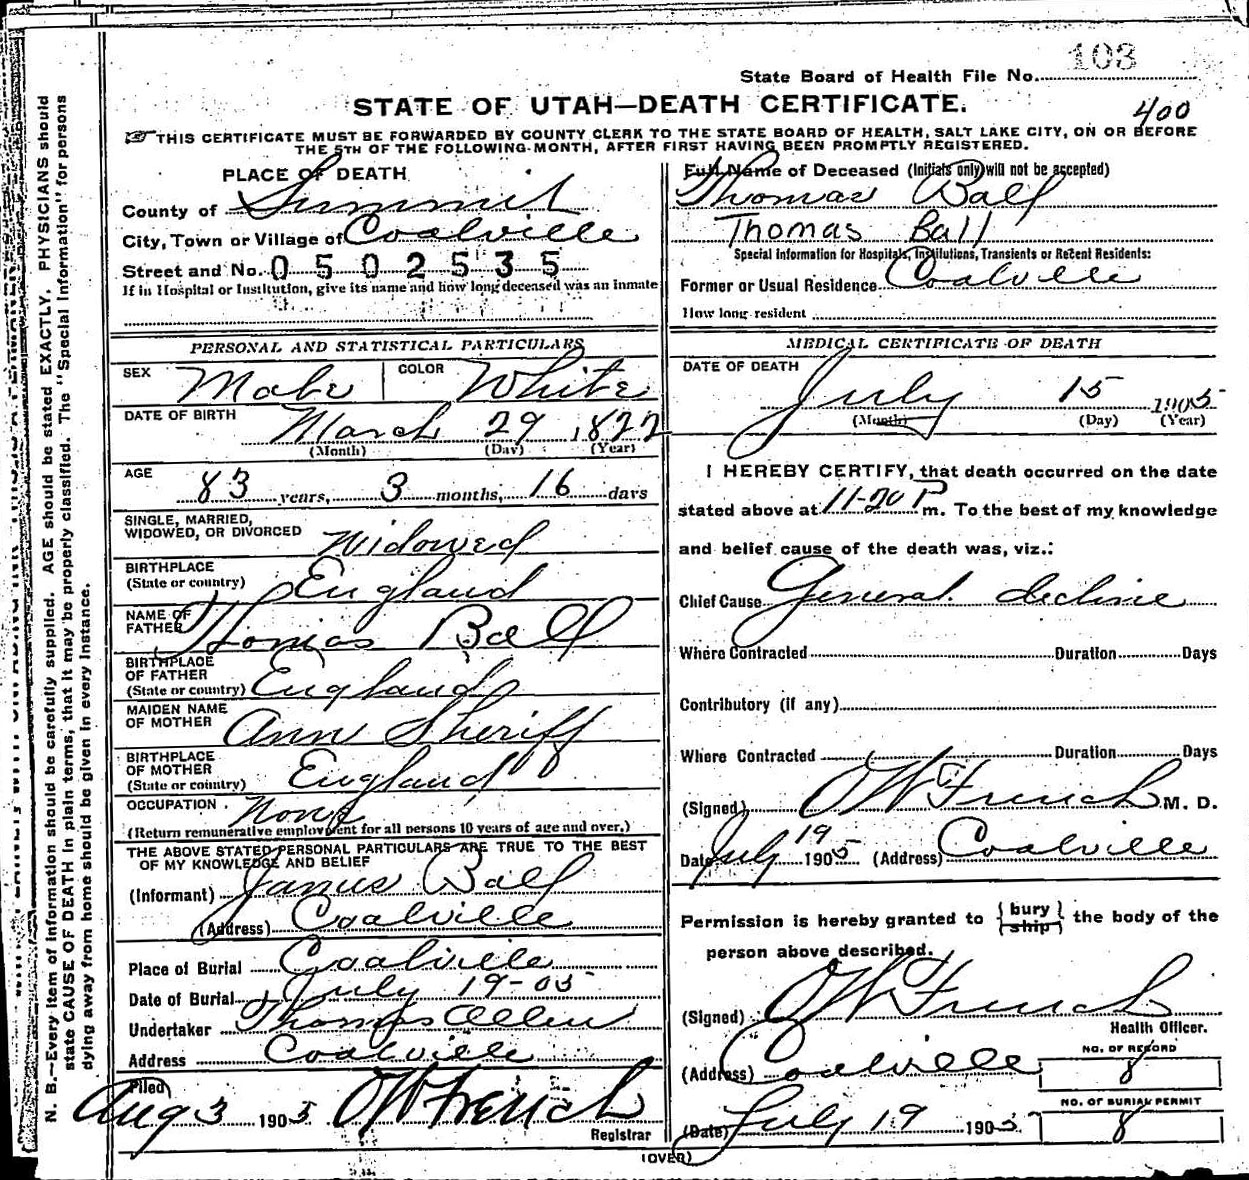 103
State Board of Health File No.
STATE OF UTAH—DEATH CERTIFICATE.
400
THIS CERTIFICATE MUST BE FORWARDED BY COUNTY CLERK TO THE STATE BOARD OF HEALTH, SALT LAKE CITY, ON OR BEFORE
THE 5TH OF THE FOLLOWING MONTH, AFTER FIRST HAVING BEEN PROMPTLY REGISTERED.
PLACE OF DEATH
County of Summit
City, Town or Village of Coalville
Street and No. 0502535
If in Hospital or Institution, give its name and how long deceased was an inmate
Full Name of Deceased (Initials only will not be accepted)
Thomas Ball
Thomas Ball
Special Information for Hospitals, Institutions, Transients or Recent Residents:
Former or Usual Residence Coalville
How long resident
PERSONAL AND STATISTICAL PARTICULARS
SEX Male COLOR White
DATE OF BIRTH March 29 1822
(Month) (Day) (Year)
AGE 83 years, 3 months, 16 days
SINGLE, MARRIED,
WIDOWED, OR DIVORCED Widowed
BIRTHPLACE
(State or country) England
NAME OF
FATHER Thomas Ball
BIRTHPLACE
OF FATHER
(State or country) England
MAIDEN NAME
OF MOTHER Ann Sheriff
BIRTHPLACE
OF MOTHER
(State or country) England
OCCUPATION None
(Return remunerative employment for all persons 10 years of age and over.)
THE ABOVE STATED PERSONAL PARTICULARS ARE TRUE TO THE BEST
OF MY KNOWLEDGE AND BELIEF
(Informant) James Ball
(Address) Coalville
Place of Burial Coalville
Date of Burial July 19-05
Undertaker Thomas Allen
Address Coalville
Filed
Aug 3 1905 OW French
Registrar
MEDICAL CERTIFICATE OF DEATH
DATE OF DEATH
July 15 1905
(Month) (Day) (Year)
I HEREBY CERTIFY, that death occurred on the date
stated above at 11-20 P m. To the best of my knowledge
and belief cause of the death was, viz.:
Chief Cause General decline
Where Contracted Duration Days
Contributory (if any)
Where Contracted Duration Days
(Signed) OW French M. D.
Date July 19 1905 (Address) Coalville
Permission is hereby granted to { bury ship } the body of the
person above described.
(Signed) OW French
Health Officer.
(Address) Coalville
NO. OF RECORD
8
(Date) July 19 1905
NO. OF BURIAL PERMIT
8
(OVER)
N. B.—Every item of information should be carefully supplied. AGE should be stated EXACTLY. PHYSICIANS should
state CAUSE OF DEATH in plain terms, that it may be properly classified. The "Special Information" for persons
dying away from home should be given in every instance.